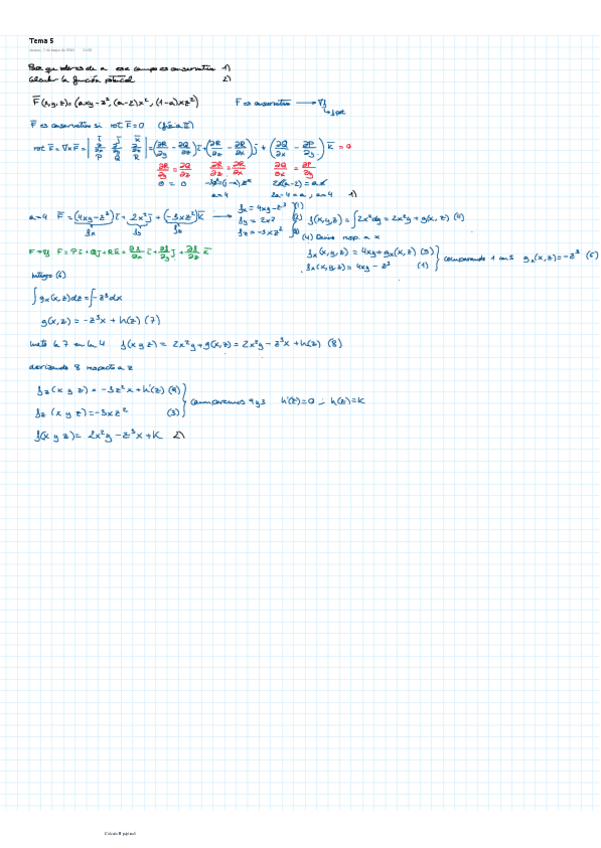 Tema 5
Para que valores de a ese campo es conservativo 1)
Calcular la función potencial 2)
F̄(x,y,z)=(axy-z³, (a-2)x², (1-a)xz²) F es conservativo → ∇f
↳ f pot
F̄ es conservativo si rot F̄=0
rot F̄=∇×F̄=| ī j̄ k̄ ∂/∂x ∂/∂y ∂/∂z P Q R |=(∂R/∂y - ∂Q/∂z)ī+(∂P/∂z - ∂R/∂x)j̄+(∂Q/∂x - ∂P/∂y)k̄ = 0
∂R/∂y = ∂Q/∂z ∂P/∂z = ∂R/∂x ∂Q/∂x = ∂P/∂y
0 = 0 -3z²=(1-a)z² 2x(a-2)=ax
a=4 2a-4=a; a=4 1)
a=4 F̄=(4xy-z³)ī+2x²j̄+(-3xz²)k̄ → fx=4xy-z³ (1)
fx fy fz fy=2x² (2) f(x,y,z)=∫2x²dy=2x²y+g(x,z) (4)
fz=-3xz² (3)
(4) Derivo resp. a x
F=∇f F=Pī+Qj̄+Rk̄=∂f/∂x ī+∂f/∂y j̄+∂f/∂z k̄
fx(x,y,z)=4xy+gx(x,z) (5)
fx(x,y,z)=4xy-z³ (1) comparando 1 con 5 gx(x,z)=-z³ (6)
Integro (6)
∫gx(x,z)dz=∫-z³dx
g(x,z)=-z³x+h(z) (7)
meto la 7 en la 4 f(x y z)=2x²y+g(x,z)=2x²y-z³x+h(z) (8)
derivando 8 respecto a z
fz(x y z)=-3z²x+h'(z) (9)
fz(x y z)=-3xz² (3) comparamos 9 y 3 h'(z)=0; h(z)=K
f(x y z)=2x²y-z³x+K 2)
Cálculo II página 1